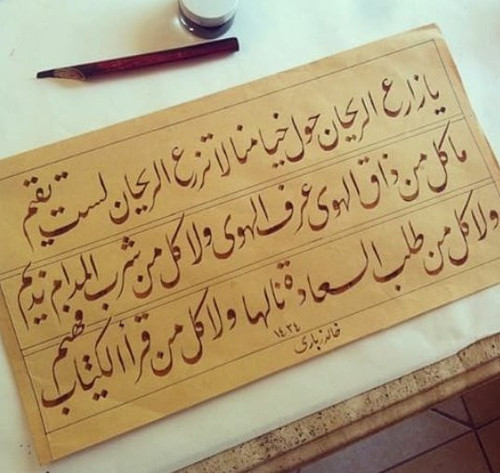 يا زارع الريحان حول خيامنا لا تزرع الريحان لست تقيم
ما كل من ذاق الهوى عرف الهوى ولا كل من شرب المدام نديم
ولا كل من طلب السعادة نالها ولا كل من قرأ الكتاب فهيم
١٤٣٤